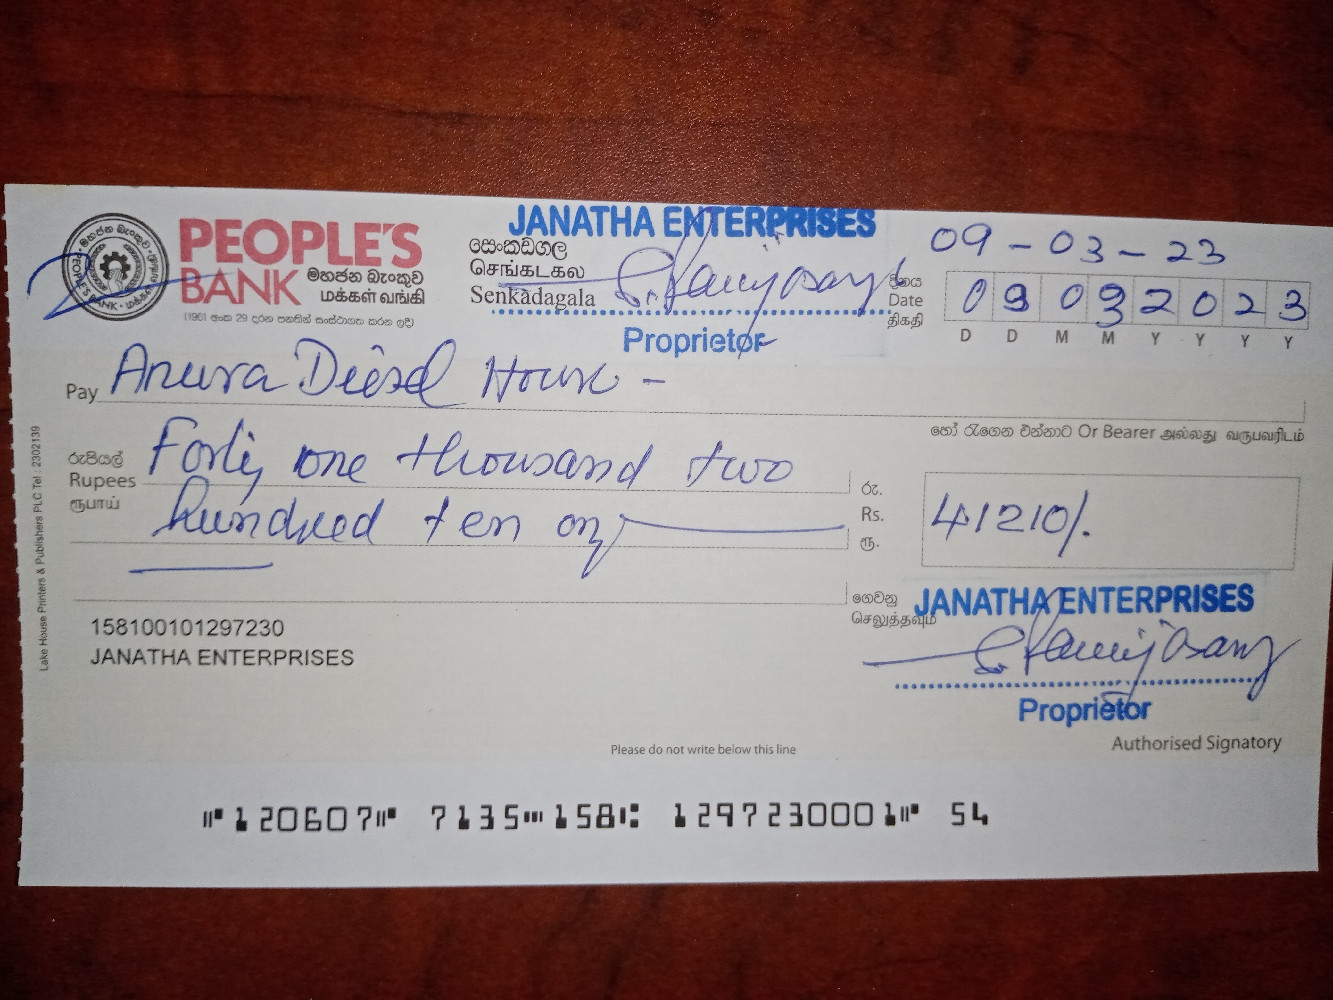 PEOPLE'S
BANK මහජන බැංකුව
மக்கள் வங்கி
(1961 අංක 29 දරන පනතින් සංස්ථාගත කරන ලදී)
JANATHA ENTERPRISES
සෙංකඩගල
செங்கடகல
Senkadagala
Proprietor
09-03-23
දිනය
Date
திகதி
0 9 0 3 2 0 2 3
D D M M Y Y Y Y
Pay Anura Diesel House -
හෝ රැගෙන එන්නාට Or Bearer அல்லது வருபவரிடம்
රුපියල්
Rupees
ரூபாய்
Forty one thousand two
hundred ten only
රු.
Rs.
ரூ.
41210/.
ගෙවනු
செலுத்தவும்
JANATHA ENTERPRISES
Proprietor
Authorised Signatory
158100101297230
JANATHA ENTERPRISES
Please do not write below this line
⑈120607⑈ 7135⑉158⑆ 1297230001⑈ 54
Lake House Printers & Publishers PLC Tel : 2302139